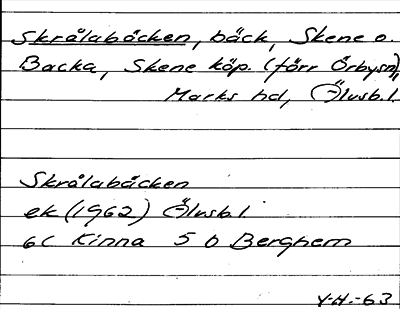 Skrålabäcken, bäck, Skene o.
Backa, Skene köp. (förr Örbysn),
Marks hd, Älvsb.l.
Skrålabäcken
ek (1962) Älvsb.l
6C Kinna 5 0 Berghem
Y-H.-63